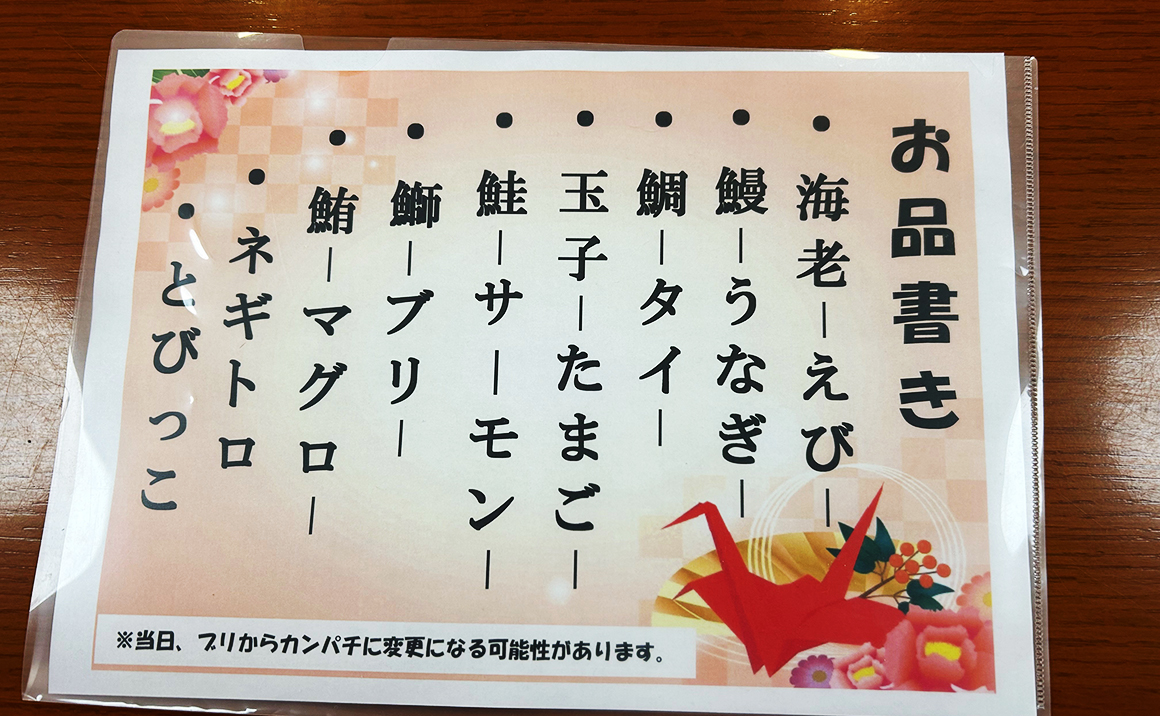 お品書き
・海老ーえびー
・鰻ーうなぎー
・鯛ータイー
・玉子ーたまごー
・鮭ーサーモンー
・鰤ーブリー
・鮪ーマグロー
・ネギトロ
・とびっこ
※当日、ブリからカンパチに変更になる可能性があります。